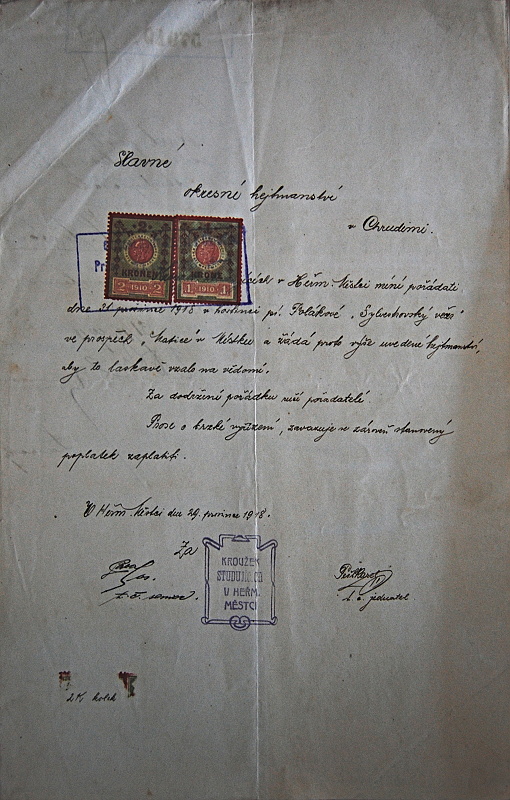 Slavné
okresní hejtmanství
v Chrudimi.
KRONEN
2 1910 2
KRONE
1 1910 1
v Heřm. Městci míní pořádati
dne 31. prosince 1918 v hostinci pí. Polákové, „Sylvestrovský
ve prospěch „Matice" v Městku a žádá proto výše uvedené hejtmanství,
aby to laskavě vzalo na vědomí.
Za dodržení pořádku ručí pořadatelé.
Prose o brzké vyřízení, zavazuje se zároveň stanovený
poplatek zaplatiti.
V Heřm. Městci dne 29. prosince 1918.
Za
KROUŽEK
STUDUJÍCÍCH
V HEŘM.
MĚSTCI
t. č. jednatel
2K kolek